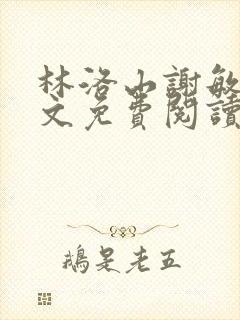 林洛山謝敏
文免費閱讀
鵝是老五